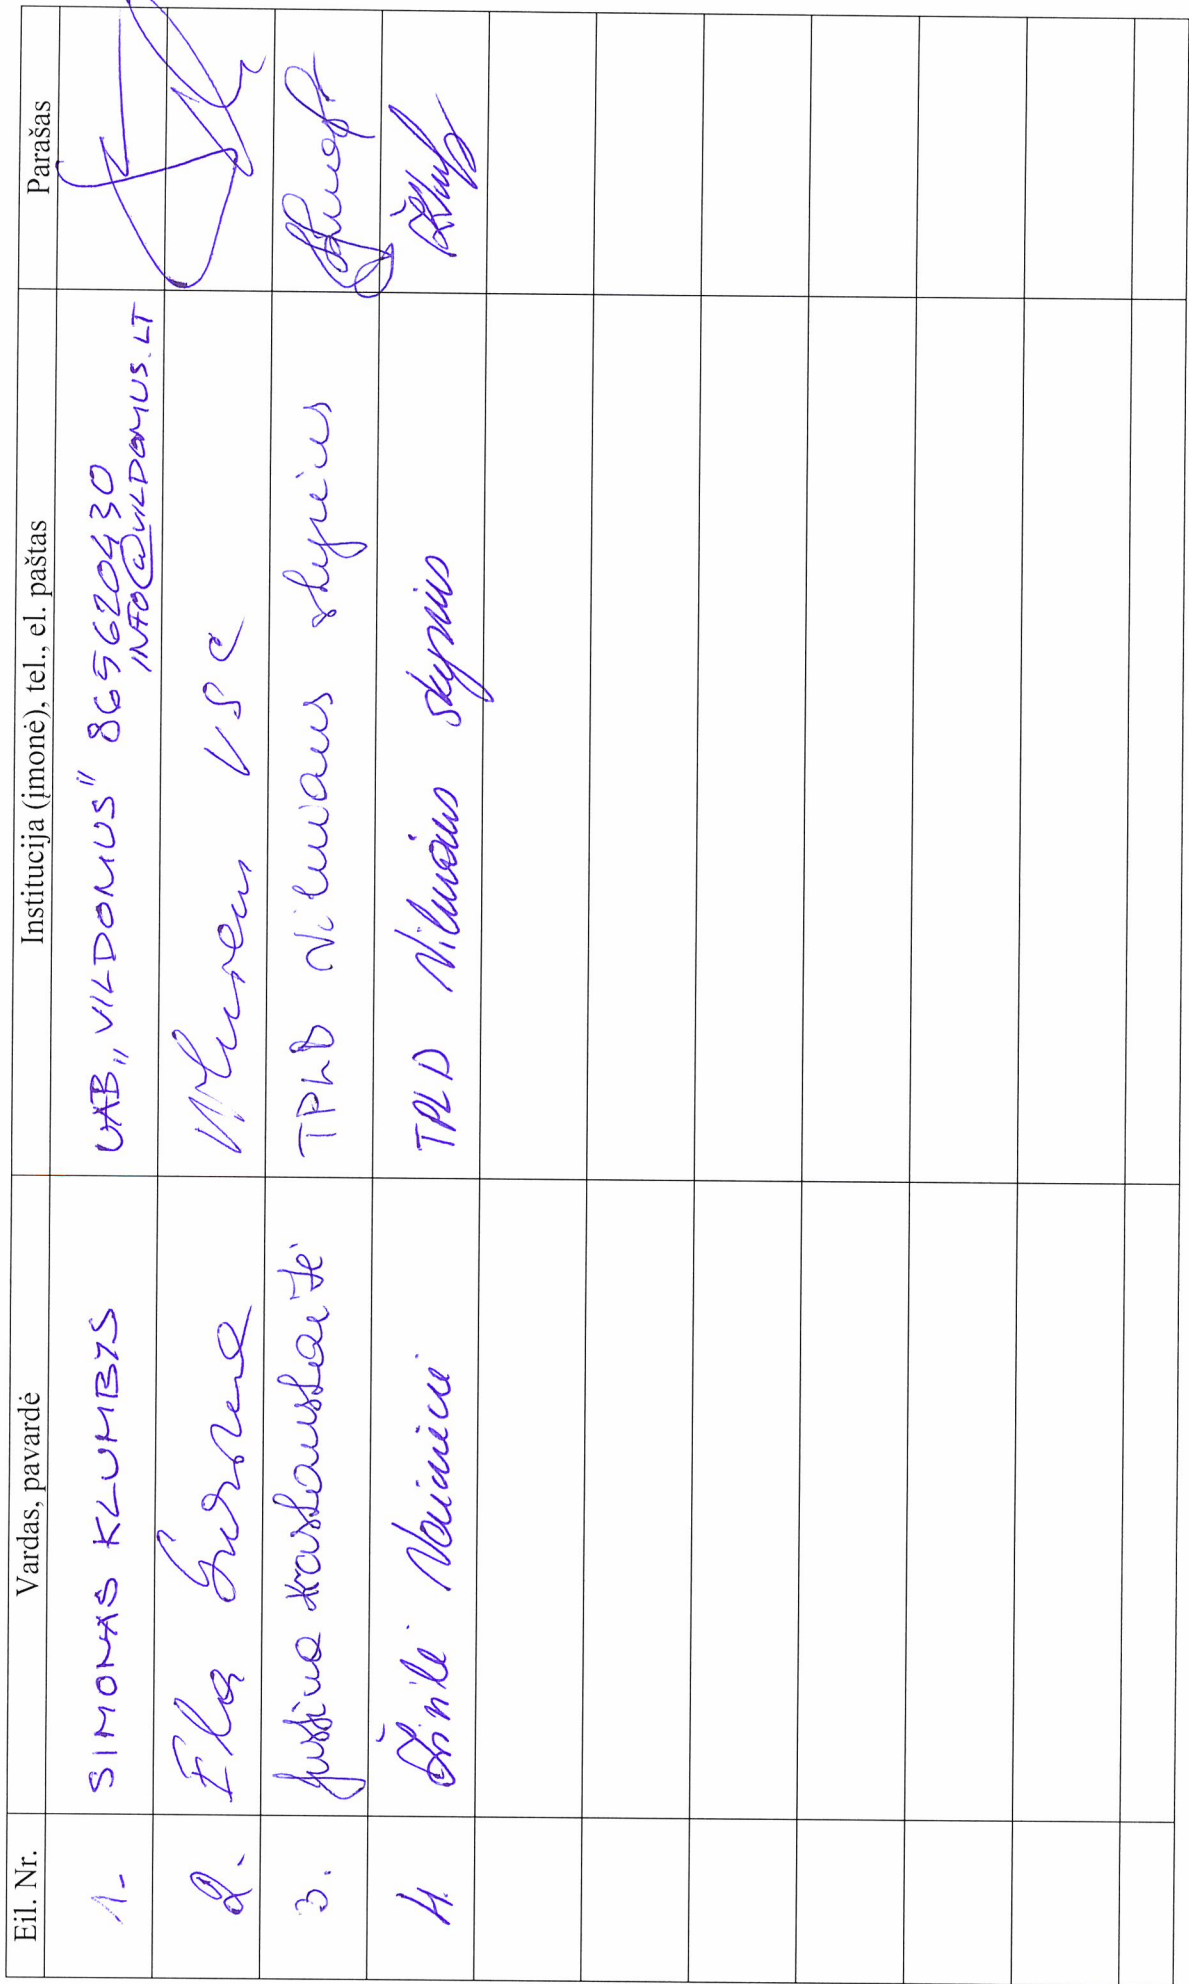 Eil. Nr. Vardas, pavardė Institucija (įmonė), tel., el. paštas Parašas
1. SIMONAS KLUMBYS UAB „VILDOMUS" 865620430
INFO@VILDOMUS.LT
2. Ela Vilniaus VSC
3. Justina Kraskauskaitė TPLD Vilniaus skyrius
4. Živilė TPLD Vilniaus skyrius